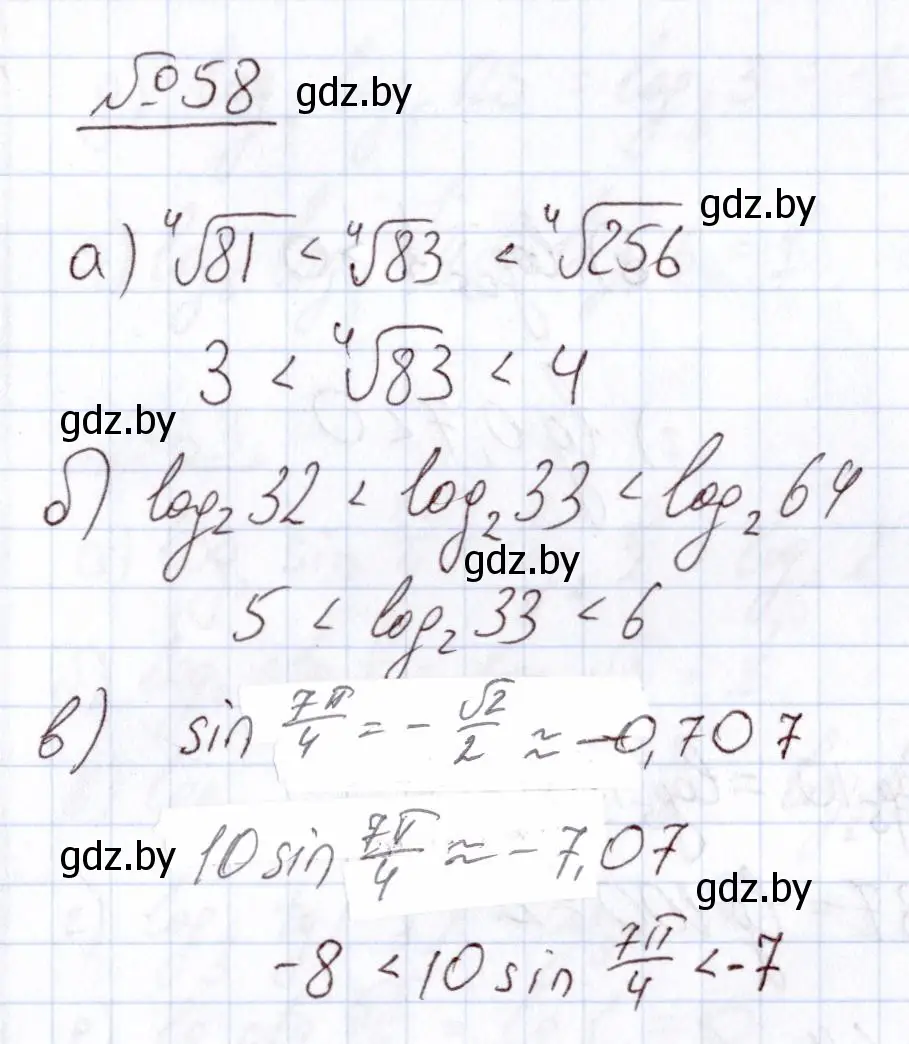 №58 gdz.by
а) ⁴√81 < ⁴√83 < ⁴√256 gdz.by
3 < ⁴√83 < 4
gdz.by
б) log₂ 32 < log₂ 33 < log₂ 64
gdz.by
5 < log₂ 33 < 6
в) sin 7π/4 = - √2/2 ≈ -0,707
gdz.by 10 sin 7π/4 ≈ - 7,07
gdz.by
-8 < 10 sin 7π/4 < -7